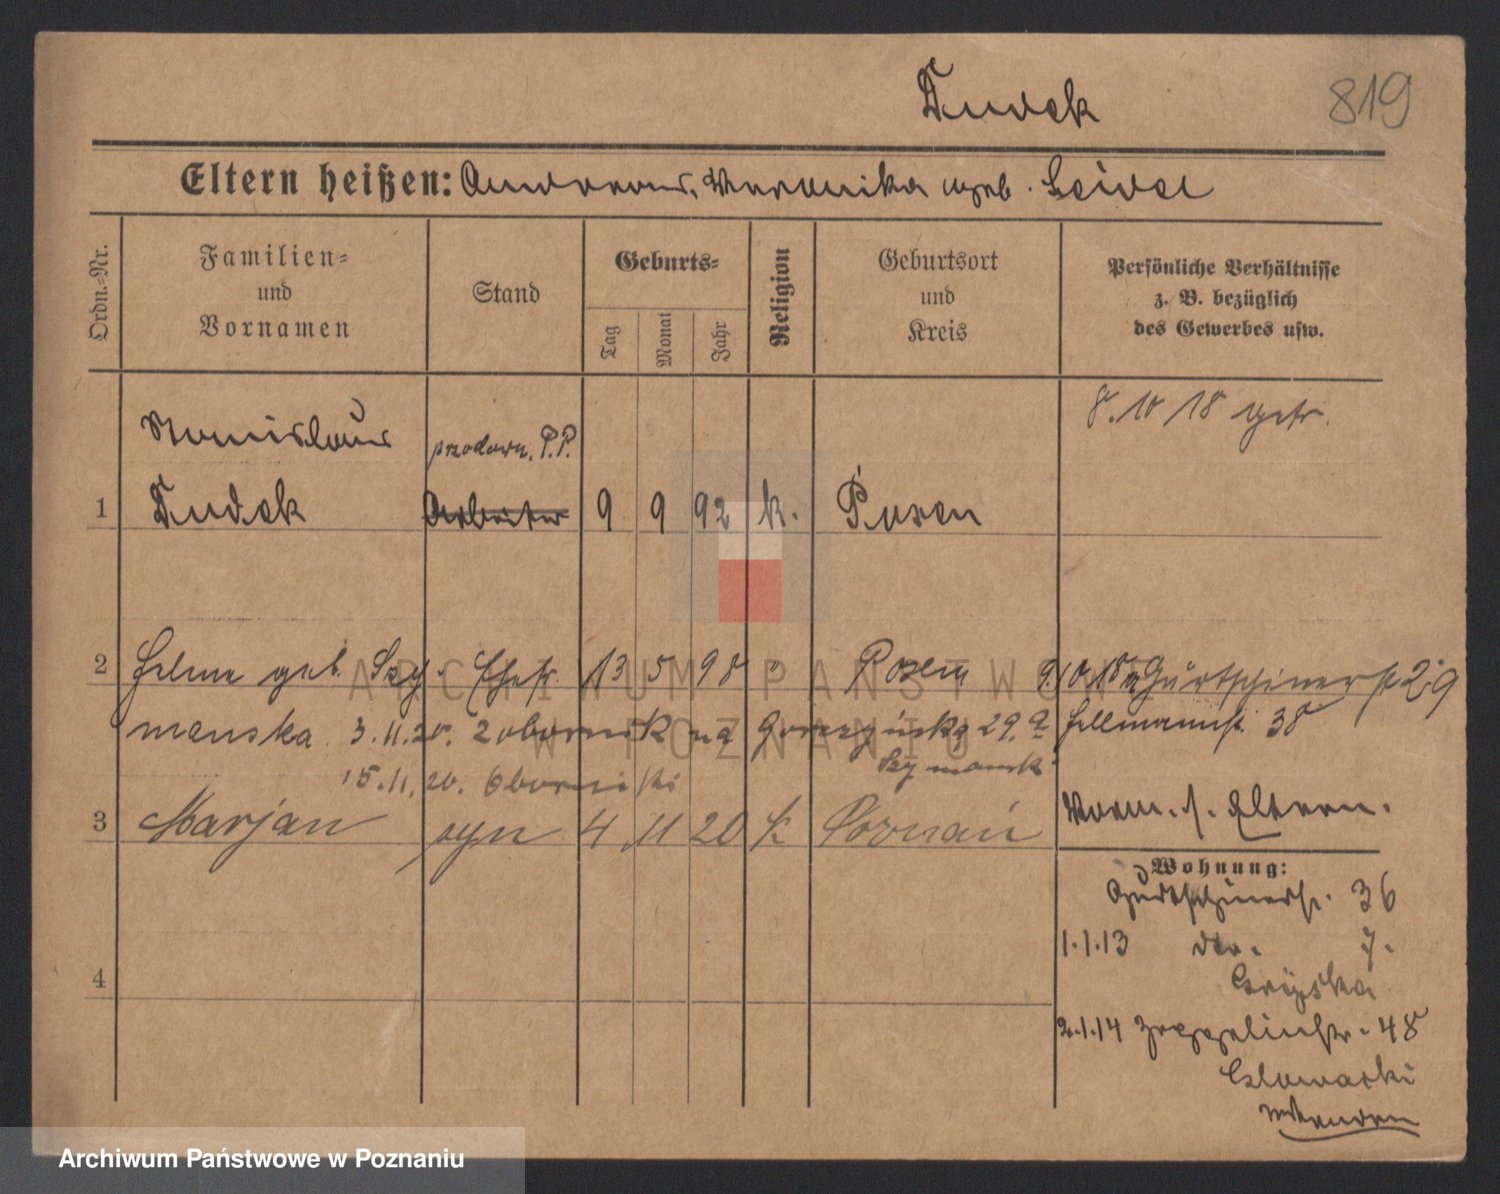 Dudek 819
Eltern heißen: Andreas, Veronika geb.
Ordn.-Nr.
Familien-
und
Vornamen
Stand
Geburts-
Tag
Monat
Jahr
Religion
Geburtsort
und
Kreis
Persönliche Verhältnisse
z. B. bezüglich
des Gewerbes usw.
8.10 18 getr.
Stanislaus
przodown. P.P.
1 Dudek Arbeiter 9 9 92 k. Posen
2 Helene geb. Szy- Ehefr. 13 5 98 " Posen 9.10 18 Gurtschinerstr 29
manska 3.11.20. Zobornik na Gorczyńską 29.a Hellmannstr. 38
Szymanski
15.11.20. Oborniski
Worm. s. Eltern.
3 Marjan syn 4 11 20 k Poznań
Wohnung:
Gurtschinerstr. 36
1.1.13 dto. 7.
4
2.1.14 Zeppelinstr. 48
ARCHIWUM PAŃSTWOWE
W POZNANIU
Archiwum Państwowe w Poznaniu